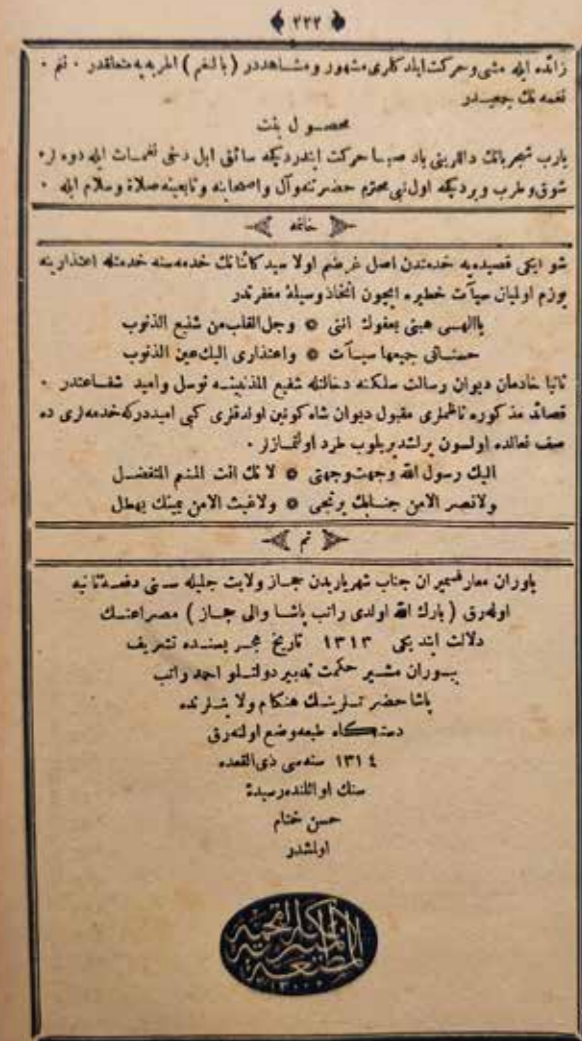 ﴿ ٢٢٢ ﴾
زائده ايله مشى وحركت ايلدكلرى مشهور ومشاهددر ( بالنغم ) اطربه يه متعلقدر ٠ نغم ٠
نغمه نك جمعيدر
محصول بيت
يارب شجر بانك داللرينى باد صبا حركت ايتدرديكه سائق ابل دخى نغمات ايله دوه لره
شوق وطرب ويرديكه اول نبى محترم حضرتنه وآل واصحابنه وتابعينه صلاة وسلام ايله ٠
خاتمه
شو ايكى قصيده يه خدمتدن اصل غرضم اولا سيد كائناتك خدمه سنه خدمتله اعتذارينه
يوزم اوليان سيآت خطيره ايچون اتخاذ وسيلۀ مغفرتدر
ياالهى هبنى بعفوك اننى ۞ وجل القلب من شنيع الذنوب
حسناتى جيعها سيآت ۞ واعتذارى اليك عين الذنوب
ثانيا خادمان ديوان رسالت سلكنه دخالتله شفيع المذنبينه توسل واميد شفاعتدر ٠
قصائد مذكوره ناظملرى مقبول ديوان شاه كونين اولدقلرى كبى اميددركه خدمه لرى ده
صف نعالده اولسون يرلشديريلوب طرد اولنمازلر ٠
اليك رسول الله وجهت وجهتى ۞ لا نك انت المنعم المتفضل
ولانصر الامن جنابك يرتجى ۞ ولاغيث الامن يمينك يهطل
تم
ياوران معارفسميران جناب شهرياريدن حجاز ولايت جليله سنى دفعۀ ثانيه
اوله رق ( بارك الله اولدى راتب پاشا والى حجاز ) مصراعنك
دلالت ايتديكى ١٣١٣ تاريخ هجريسنده تشريف
بيوران مشير حكمت تدبير دولتلو احمد راتب
پاشا حضرتلرينك هنكام ولايتلرنده
دستكاه طبعه وضع اولنه رق
١٣١٤ سنه سى ذى القعده
سنك اوائلنده رسيدۀ
حسن ختام
اولمشدر